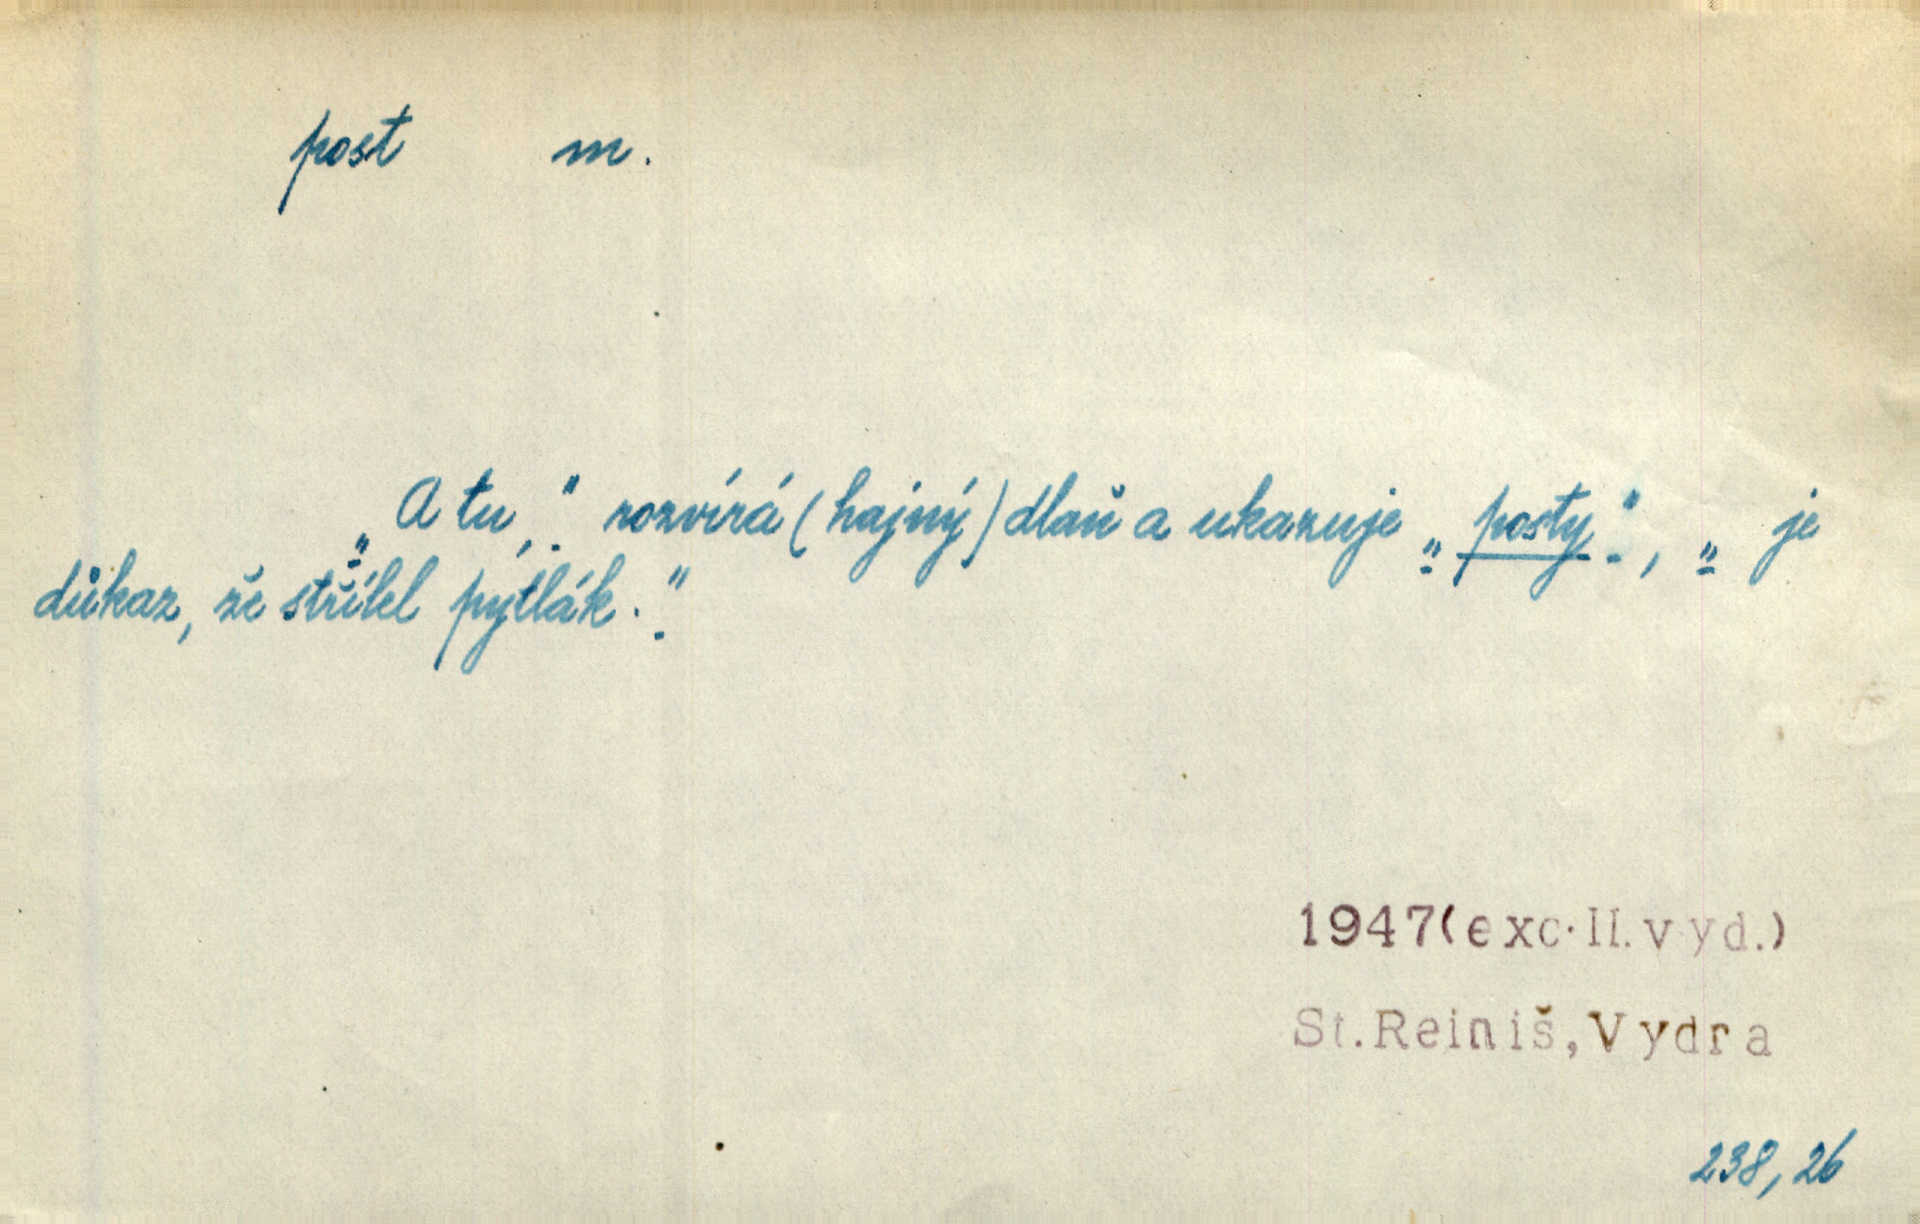 post m.
„A tu,“ rozvírá (hajný) dlaň a ukazuje „posty“, „je
důkaz, že střílel pytlák.“
1947(exc.II.vyd.)
St.Reiniš,Vydra
238,26